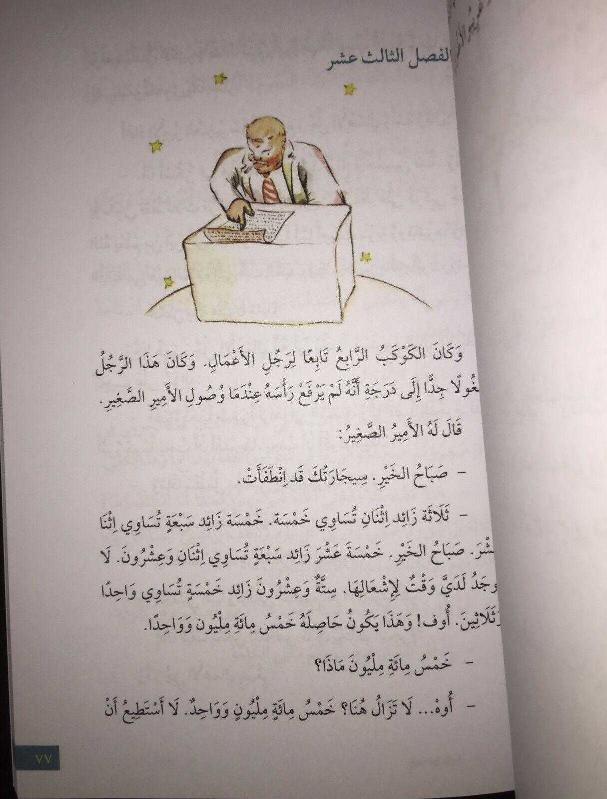 الفصل الثالث عشر
وَكَانَ الكَوْكَبُ الرَّابِعُ تَابِعًا لِرَجُلِ الأَعْمَالِ. وَكَانَ هَذَا الرَّجُلُ
غُولًا جِدًّا إِلَى دَرَجَةِ أَنَّهُ لَمْ يَرْفَعْ رَأْسَهُ عِنْدَمَا وُصُولِ الأَمِيرِ الصَّغِيرِ.
قَالَ لَهُ الأَمِيرُ الصَّغِيرُ:
- صَبَاحُ الخَيْرِ. سِيجَارَتُكَ قَد اِنْطَفَأَتْ.
- ثَلَاثَة زَائِد اِثْنَانِ تُسَاوِي خَمْسَة. خَمْسَة زَائِد سَبْعَةٍ تُسَاوِي اِثْنَا
عَشْرَ. صَبَاحُ الخَيْرِ. خَمْسَةَ عَشْرَ زَائِد سَبْعَةٍ تُسَاوِي اِثْنَانِ وَعِشْرُونَ. لَا
وجَدُ لَدَيَّ وَقْتٌ لِإِشْعَالِهَا. سِتَّةٌ وَعِشْرُونَ زَائِد خَمْسَةٍ تُسَاوِي وَاحِدًا
وَثَلَاثِينَ. أُوف! وَهَذَا يَكُونُ حَاصِلَهُ خَمْسُ مِائَةِ مِلْيُون وَوَاحِدًا.
- خَمْسُ مِائَةِ مِلْيُونَ مَاذَا؟
- أُوهْ... لَا تَزَالُ هُنَا؟ خَمْسُ مِائَةِ مِلْيُونٍ وَوَاحِدٌ. لَا أَسْتَطِيعُ أَنْ
٧٧